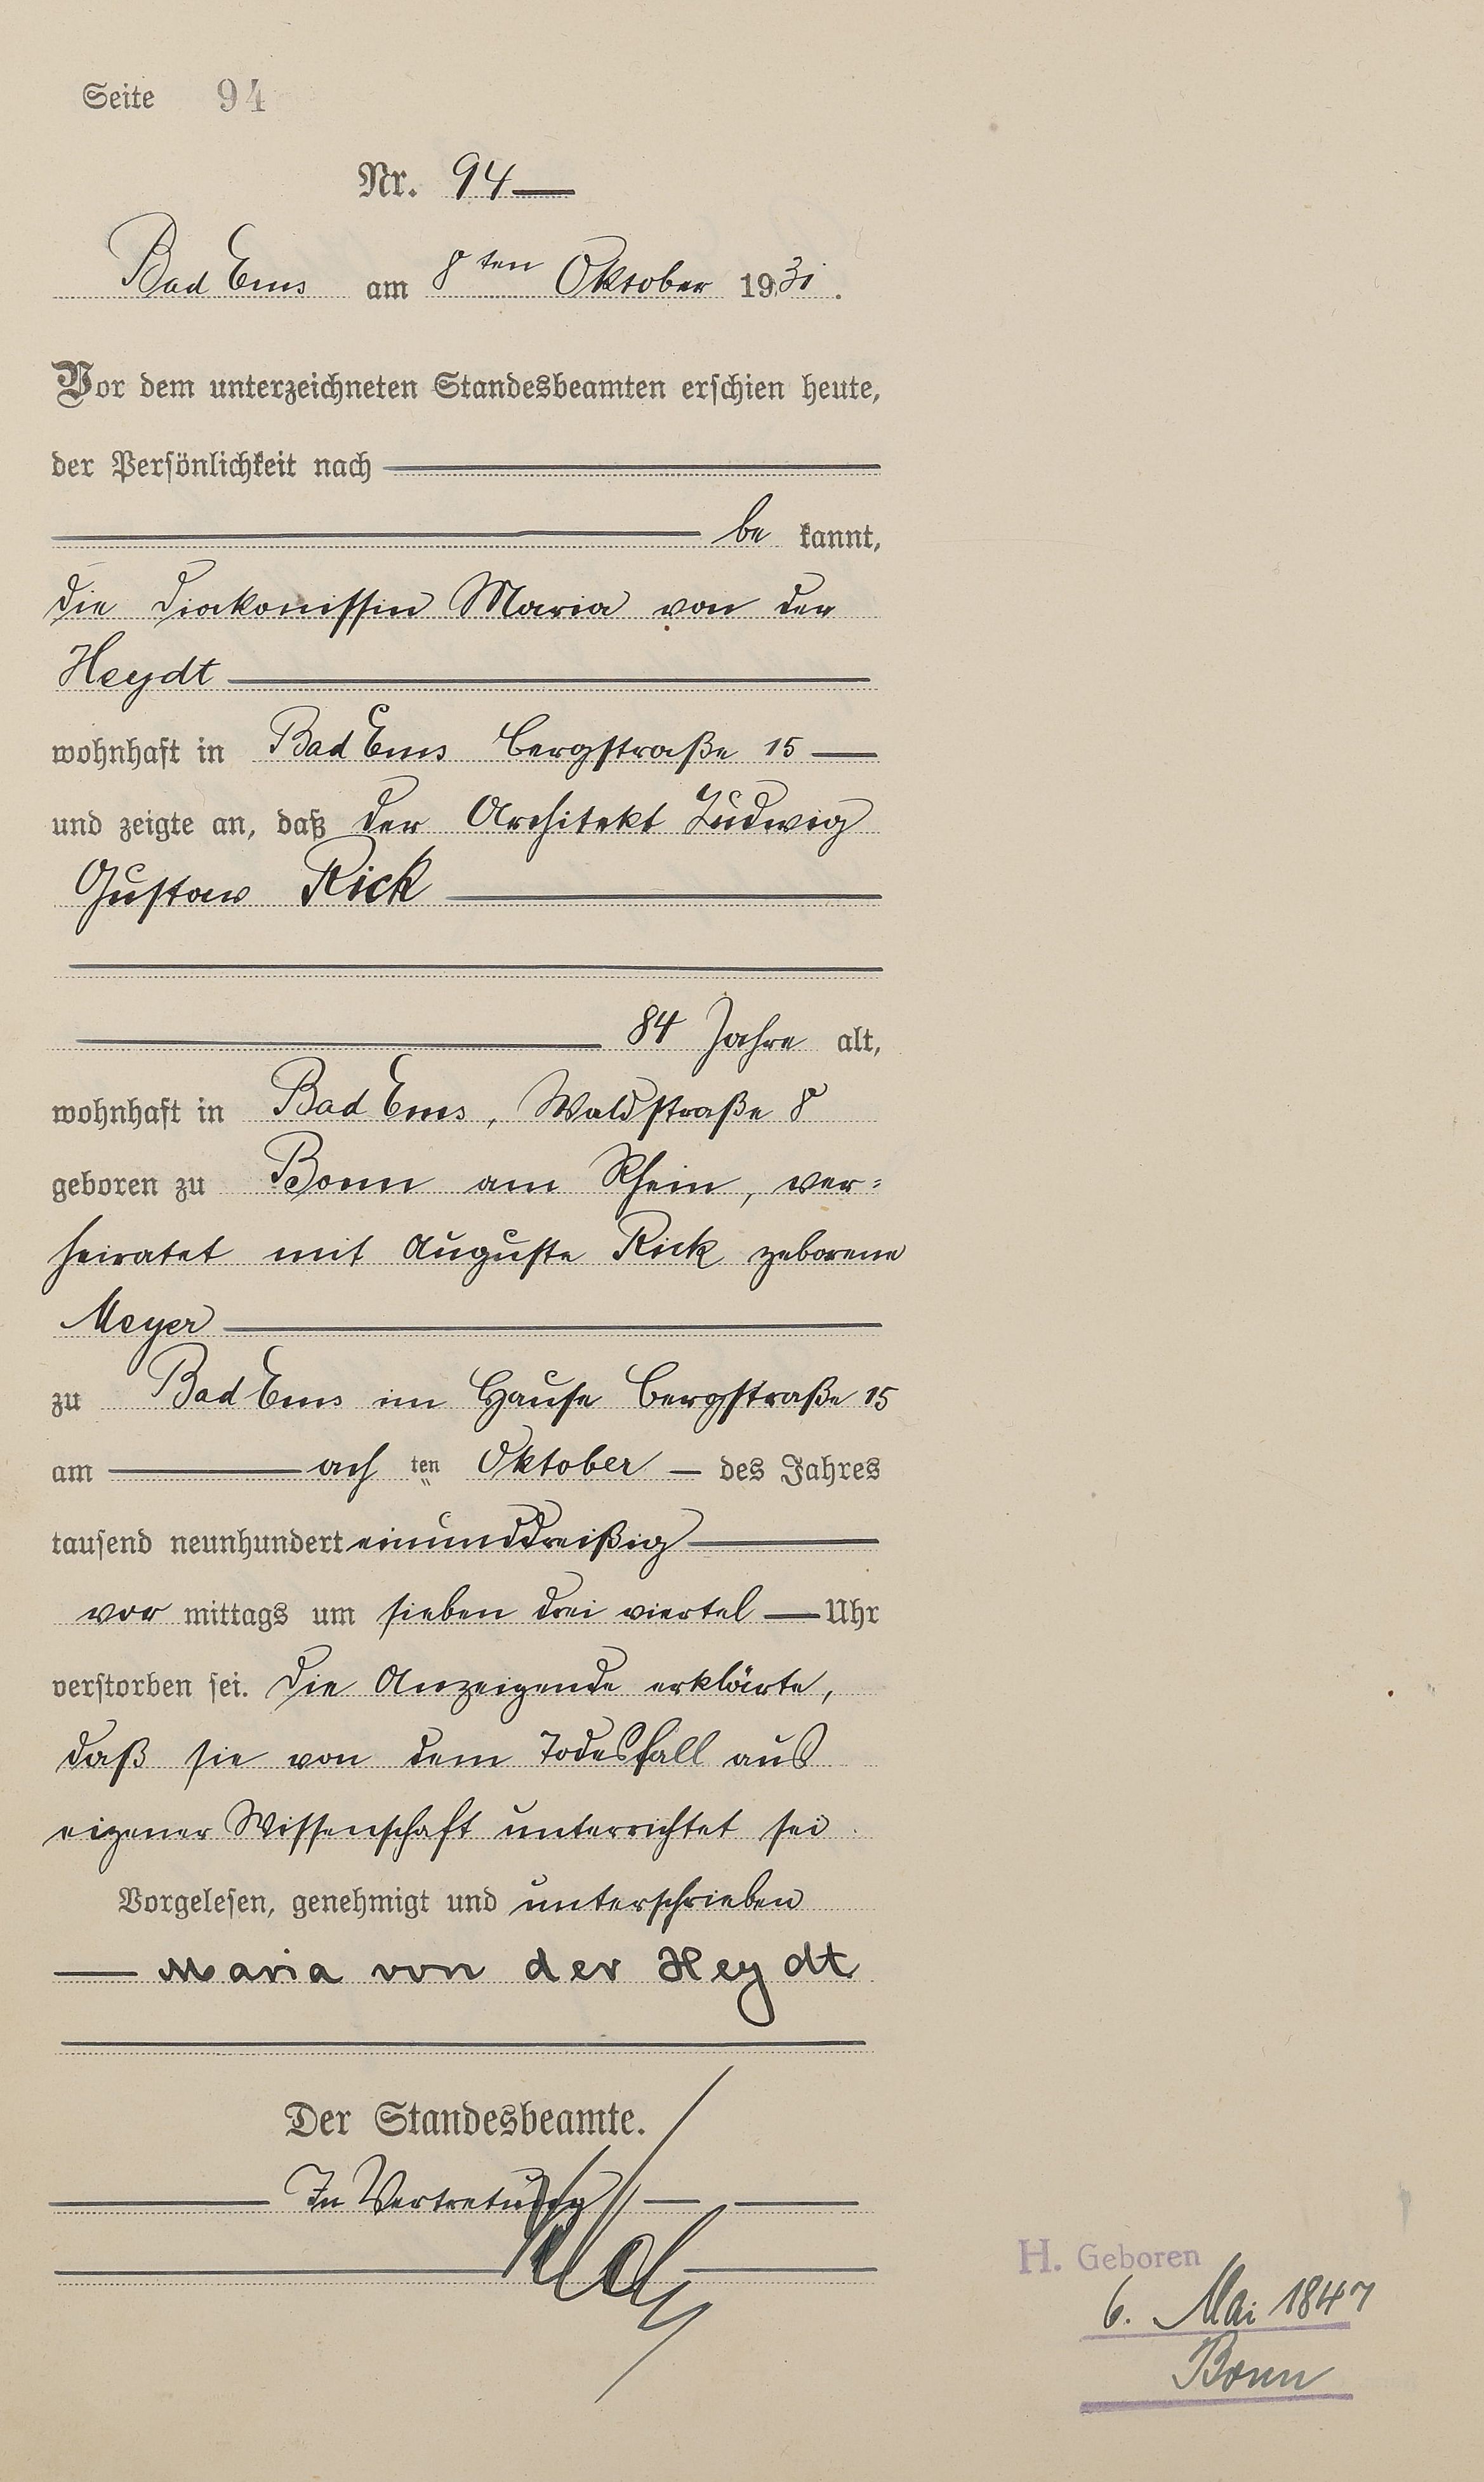 Seite 94
Nr. 94
Bad Ems am 8ten Oktober 1931.
Vor dem unterzeichneten Standesbeamten erschien heute,
der Persönlichkeit nach
be kannt,
die Diakonissin Maria von der
Heydt
wohnhaft in Bad Ems Bergstraße 15
und zeigte an, daß der Architekt Ludwig
Gustav Rick
84 Jahre alt,
wohnhaft in Bad Ems, Waldstraße 8
geboren zu Bonn am Rhein, ver=
heiratet mit Auguste Rick geborene
Meyer
zu Bad Ems im Hause Bergstraße 15
am ach ten Oktober des Jahres
tausend neunhundert einunddreißig
vor mittags um sieben drei viertel Uhr
verstorben sei. Die Anzeigende erklärte,
daß sie von dem Todesfall aus
eigener Wissenschaft unterrichtet sei
Vorgelesen, genehmigt und unterschrieben
Maria von der Heydt
Der Standesbeamte.
In Vertretung
H. Geboren
6. Mai 1847
Bonn